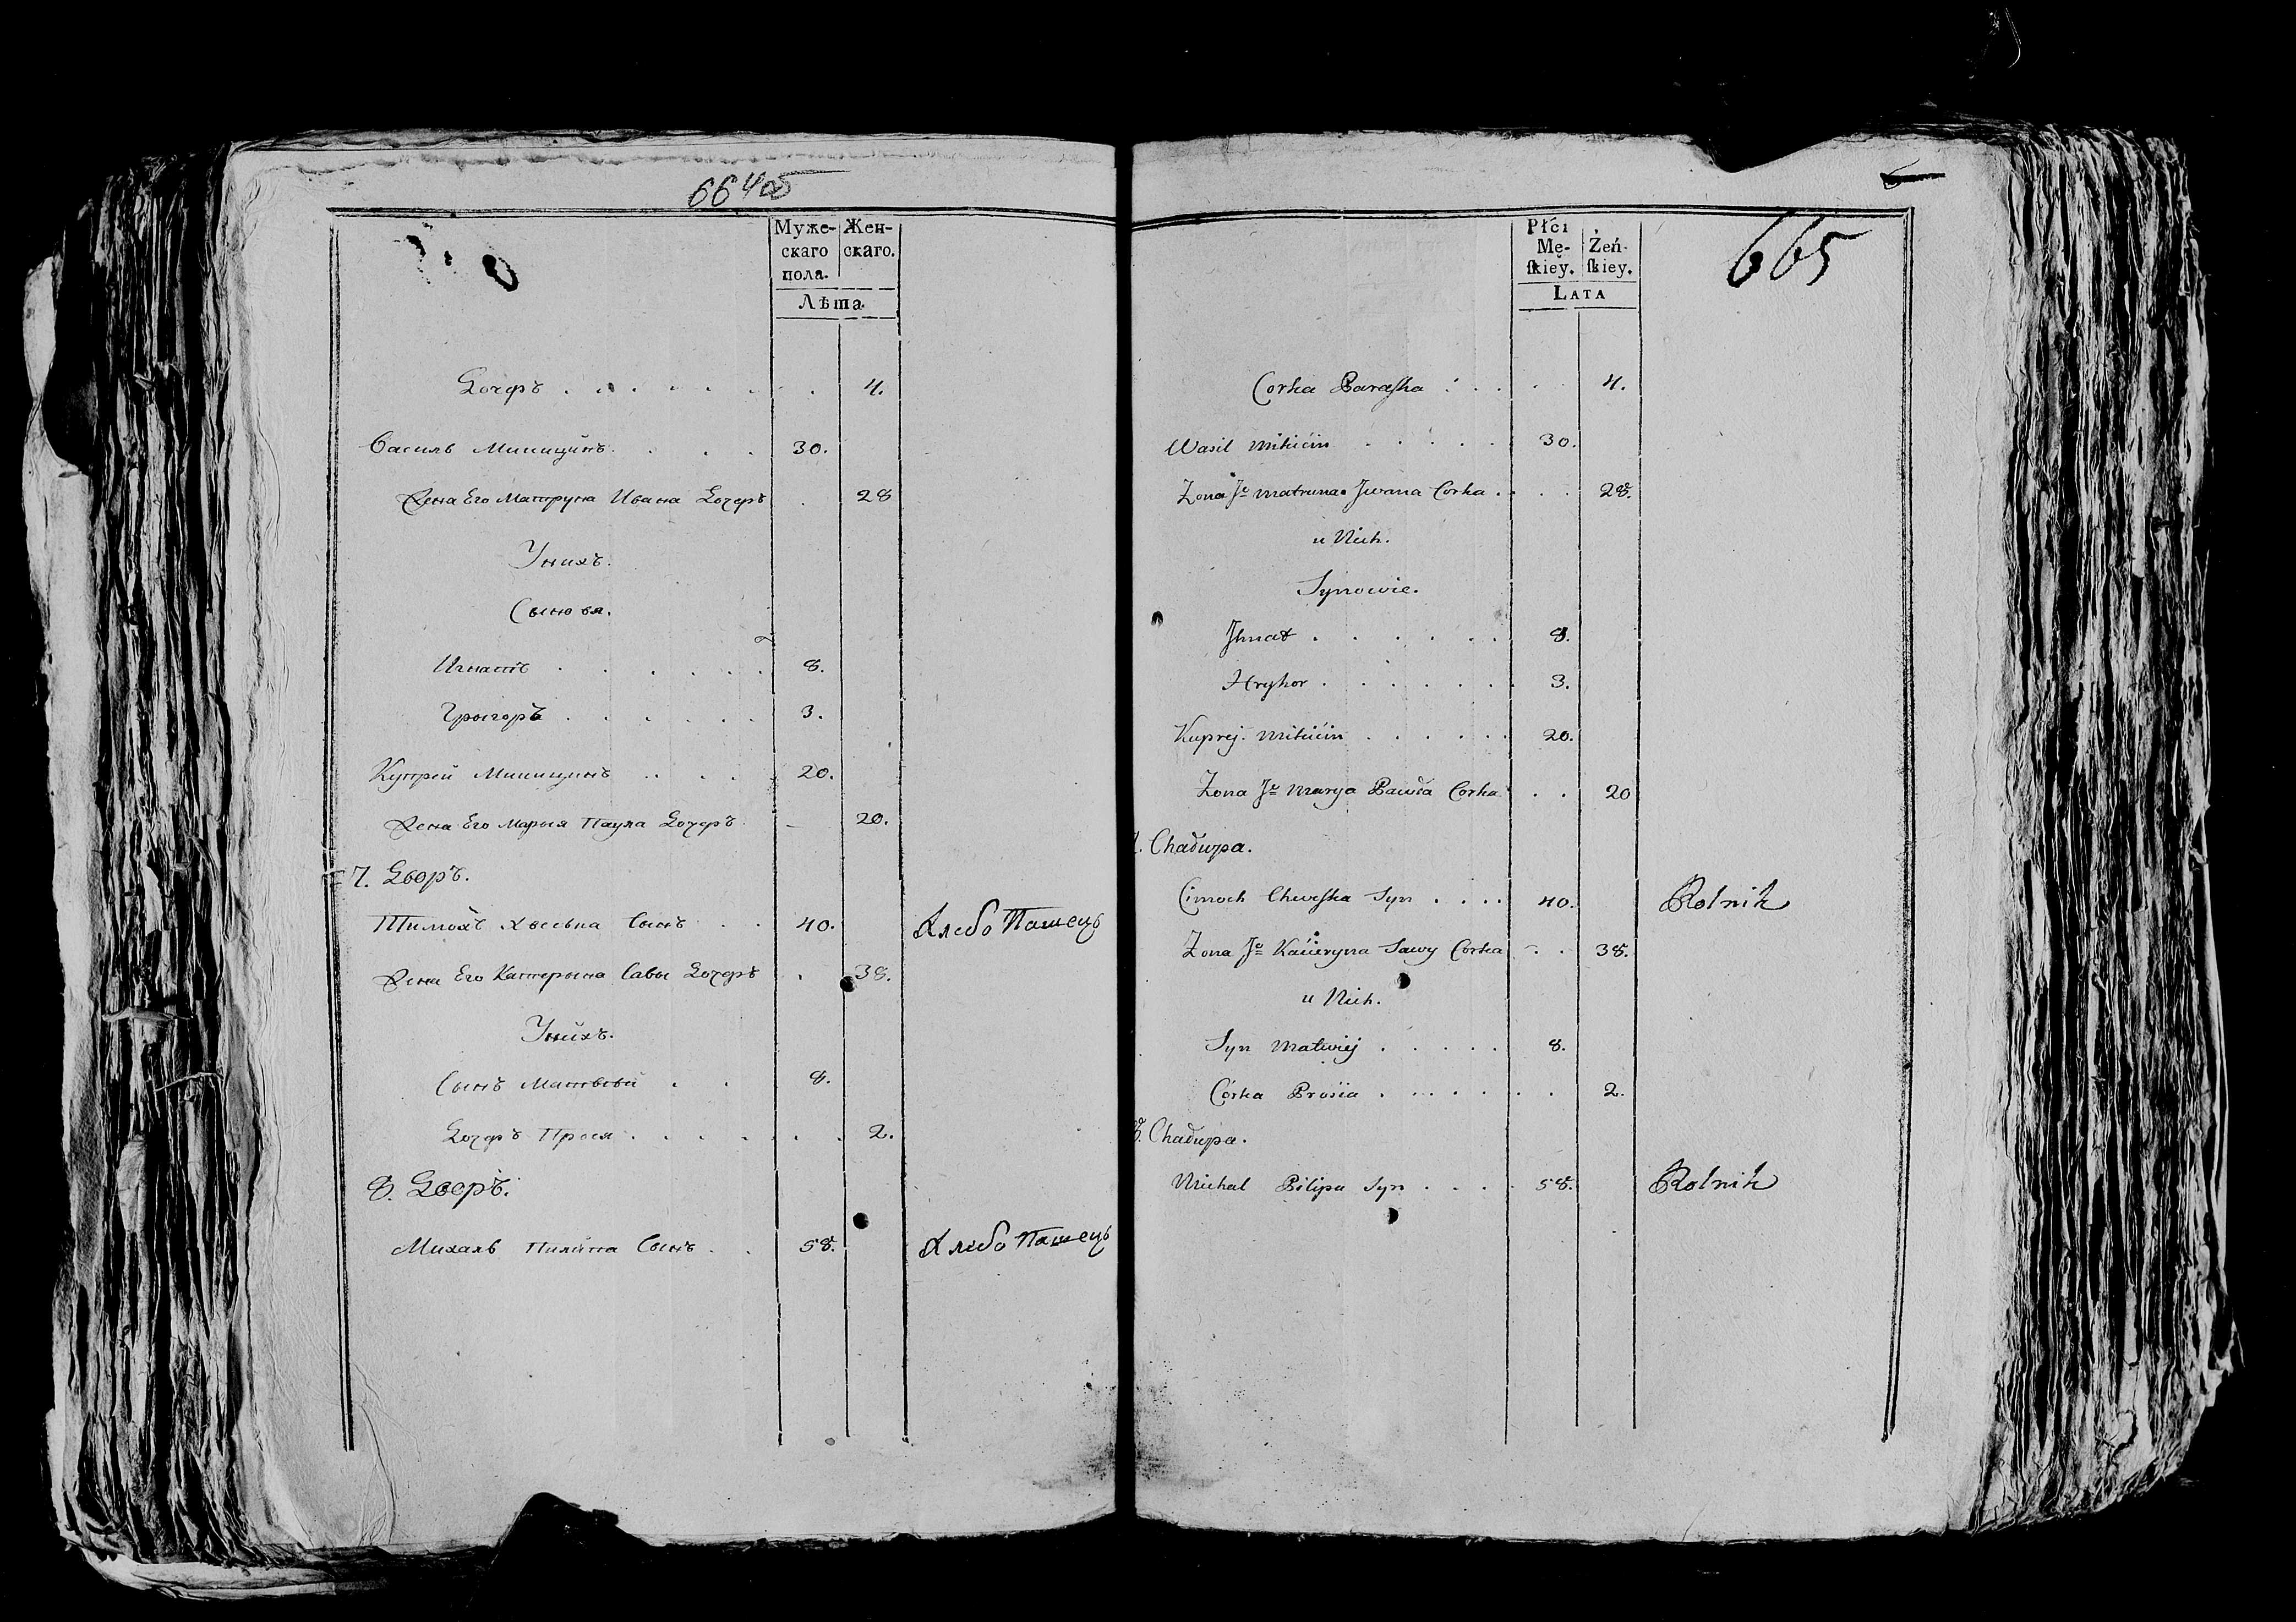 664об
Муже- Жен-
скаго скаго.
пола.
Лѣта.
Дочеръ . . . . . . . 4.
Василь Микицинъ . . . . 30.
Жена Его Матруна Ивана Дочеръ . 28
Унихъ.
Сыновя.
Игнатъ . . . . . . 8.
Грыгоръ . . . . . . 3.
Купрей Микицинъ . . . . 20.
Жена Его Марыя Паула Дочеръ 20.
7. Дворъ.
Тимохъ Хвеська Сынъ . . 40. Хлебо Пашецъ
Жена Его Катерына Савы Дочеръ . 38.
Унихъ.
Сынъ Матьвѣй . . . 8.
Дочеръ Прося . . . . . . . 2.
8. Дворъ.
Михаль Пилипа Сынъ . . 58. Хлебо Пашецъ
665
Płći
Mę- Żeń-
ſkiey. ſkiey.
LATA
Corka Paraſka . . . . . 4.
Wasil Mikicin . . . . . 30.
Zona Jº Matruna Jwana Corka . . . 28.
u Nich.
Synowie.
Jhnat . . . . . . . 8.
Hryhor . . . . . . . 3.
Kuprej Mikicin . . . . . . 20.
Zona Jº Marya Pawła Corka . . 20
Chałupa.
Cimoch Chweſka Syn . . . . 40. Rolnik
Zona Jº Kacieryna Sawy Corka . . 38.
u Nich.
Syn Matwiej . . . . . 8.
Córka Prosia . . . . . . . 2.
8. Chałupa.
Michał Pilipa Syn . . . . 58. Rolnik